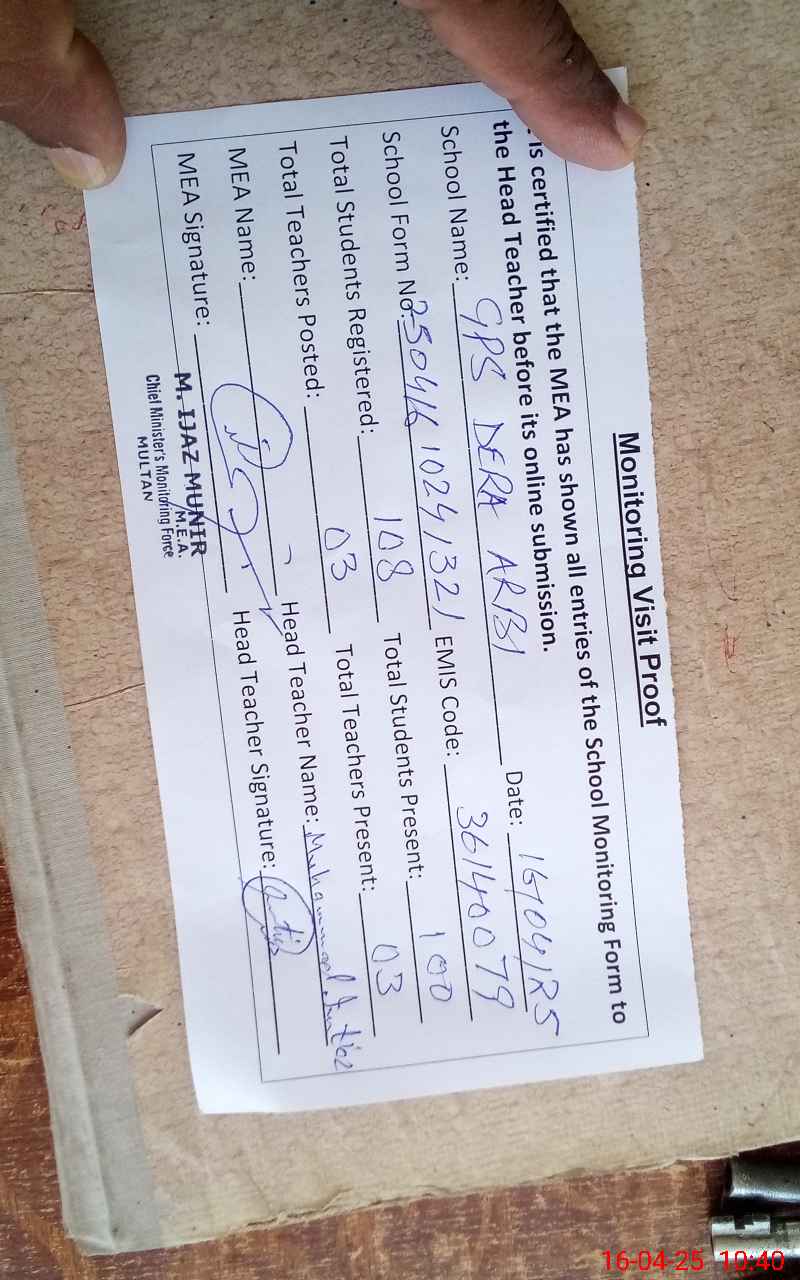 Monitoring Visit Proof
is certified that the MEA has shown all entries of the School Monitoring Form to
the Head Teacher before its online submission.
School Name: GPS DERA ARBI Date: 16/04/25
School Form No. 250416 1024 1321 EMIS Code: 36140079
Total Students Registered: 108 Total Students Present: 100
Total Teachers Posted: 03 Total Teachers Present: 03
MEA Name: Head Teacher Name: Muhammad
MEA Signature: Head Teacher Signature:
M. IJAZ MUNIR
M.E.A.
Chief Minister's Monitoring Force
MULTAN
16-04-25 10:40